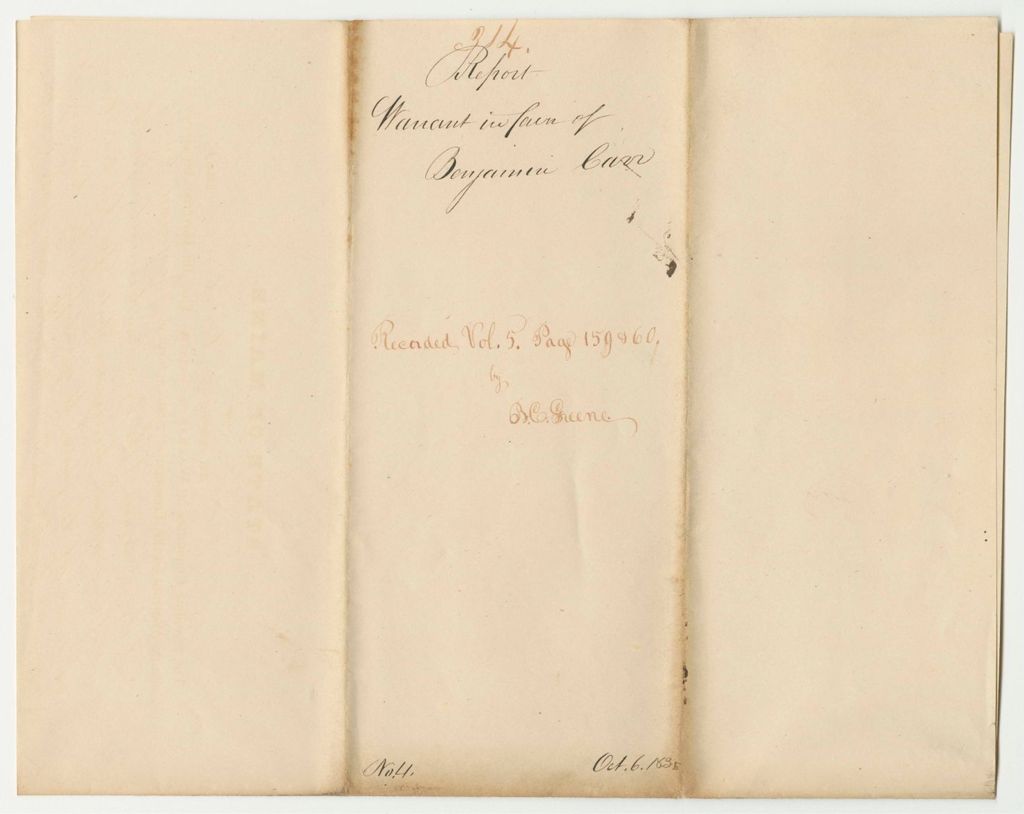 214.
Report
Warrant in favor of
Benjamin Carr
Recorded Vol. 5. Page 159 & 60,
by
B.C. Greene
No.4. Oct. 6. 183